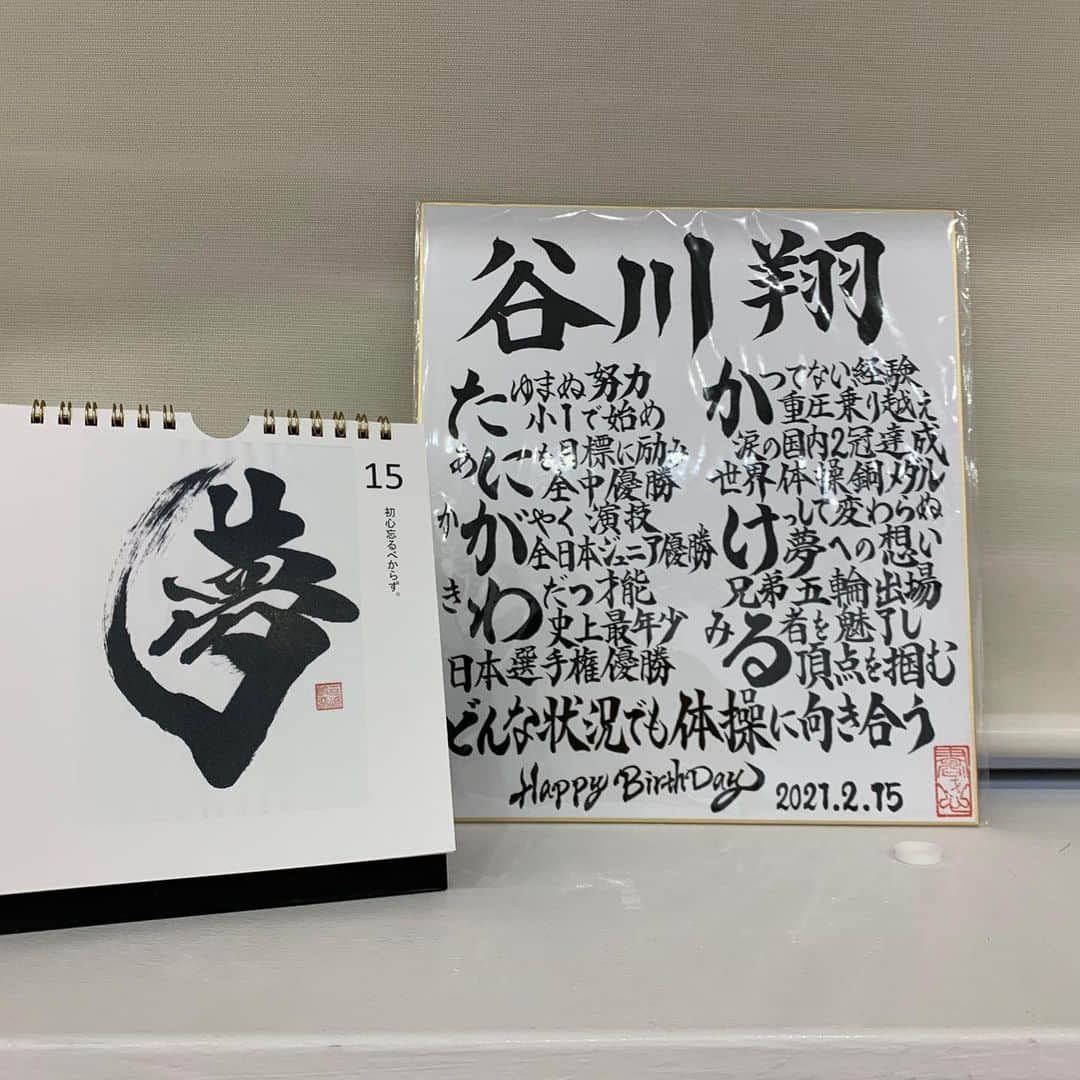 15
初心忘るべからず。
夢
谷川翔
たゆまぬ努力
小1で始め
あにも目標に励み
全中優勝
かがやく演技
全日本ジュニア優勝
きわだつ才能
史上最年少
日本選手権優勝
かつてない経験
重圧乗り越え
涙の国内2冠達成
世界体操銅メダル
けっして変わらぬ
夢への想い
兄弟五輪出場
みる者を魅了し
頂点を掴む
どんな状況でも体操に向き合う
Happy BirthDay
2021.2.15